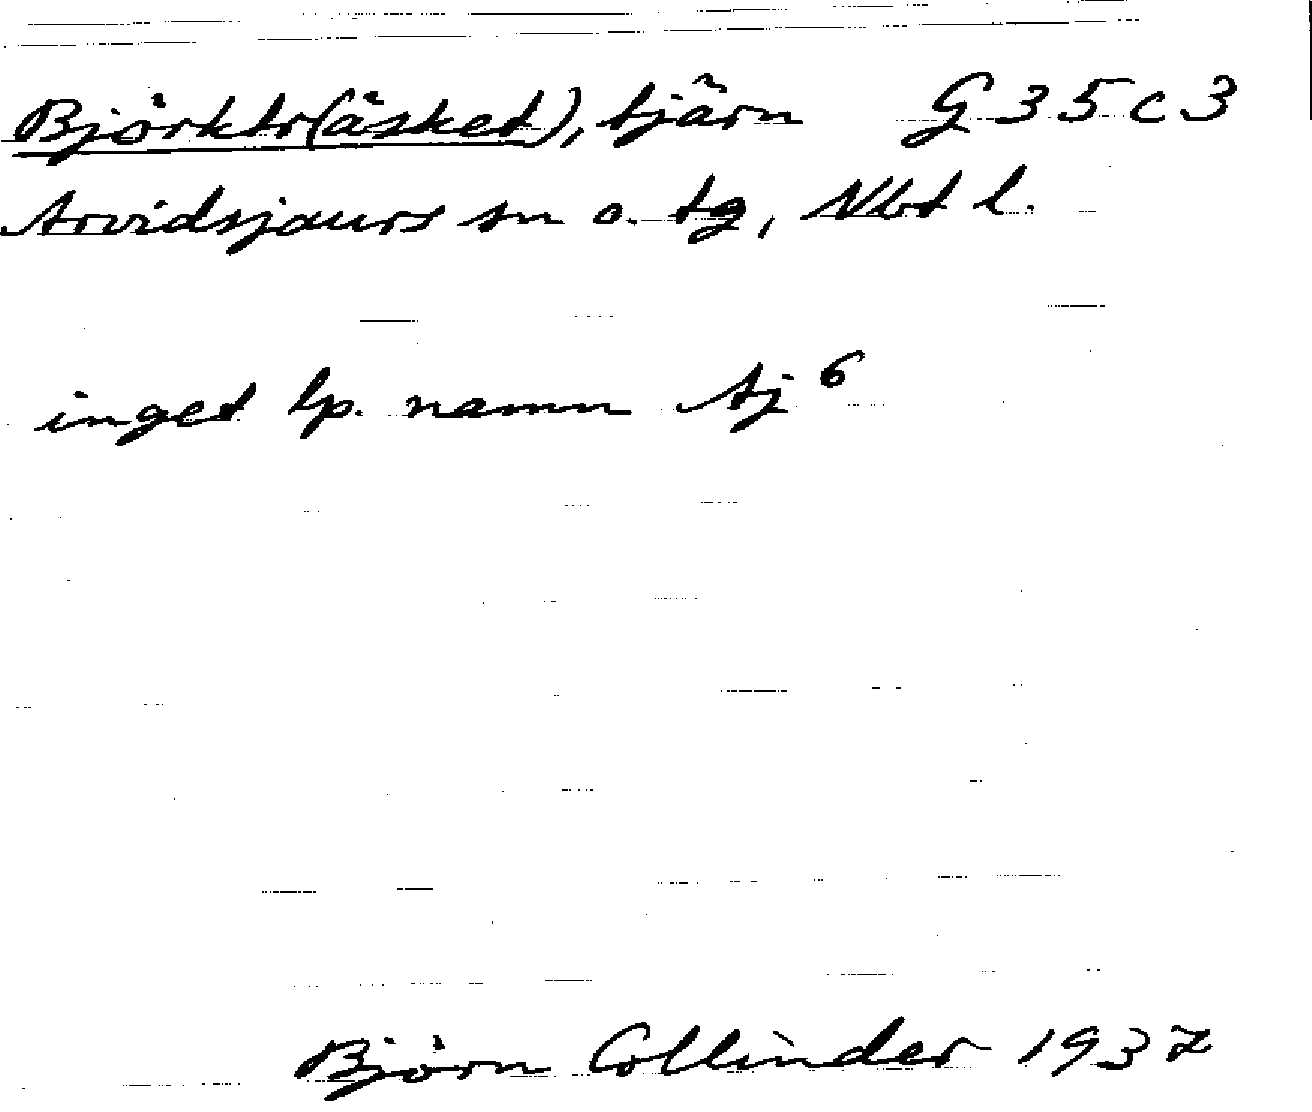 Björktr(äsket), tjärn G 35 c 3
Arvidsjaurs sn o. tg, Nbt l.
inget lp. namn Aj 6
Björn Collinder 1937